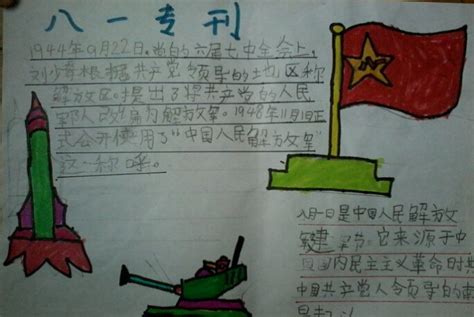 八一专刊
1944年9月22日,党的六届七中全会上,
刘少奇根据共产党领导的地区称
解放区。提出了将共产党的人民
军队改为解放军。1948年11月1日正
式公开使用了"中国人民解放军"
这一称呼。
八月一日是中国人民解放
军建军节。它来源于中
国国内民主主义革命时
中国共产党人令领导的南